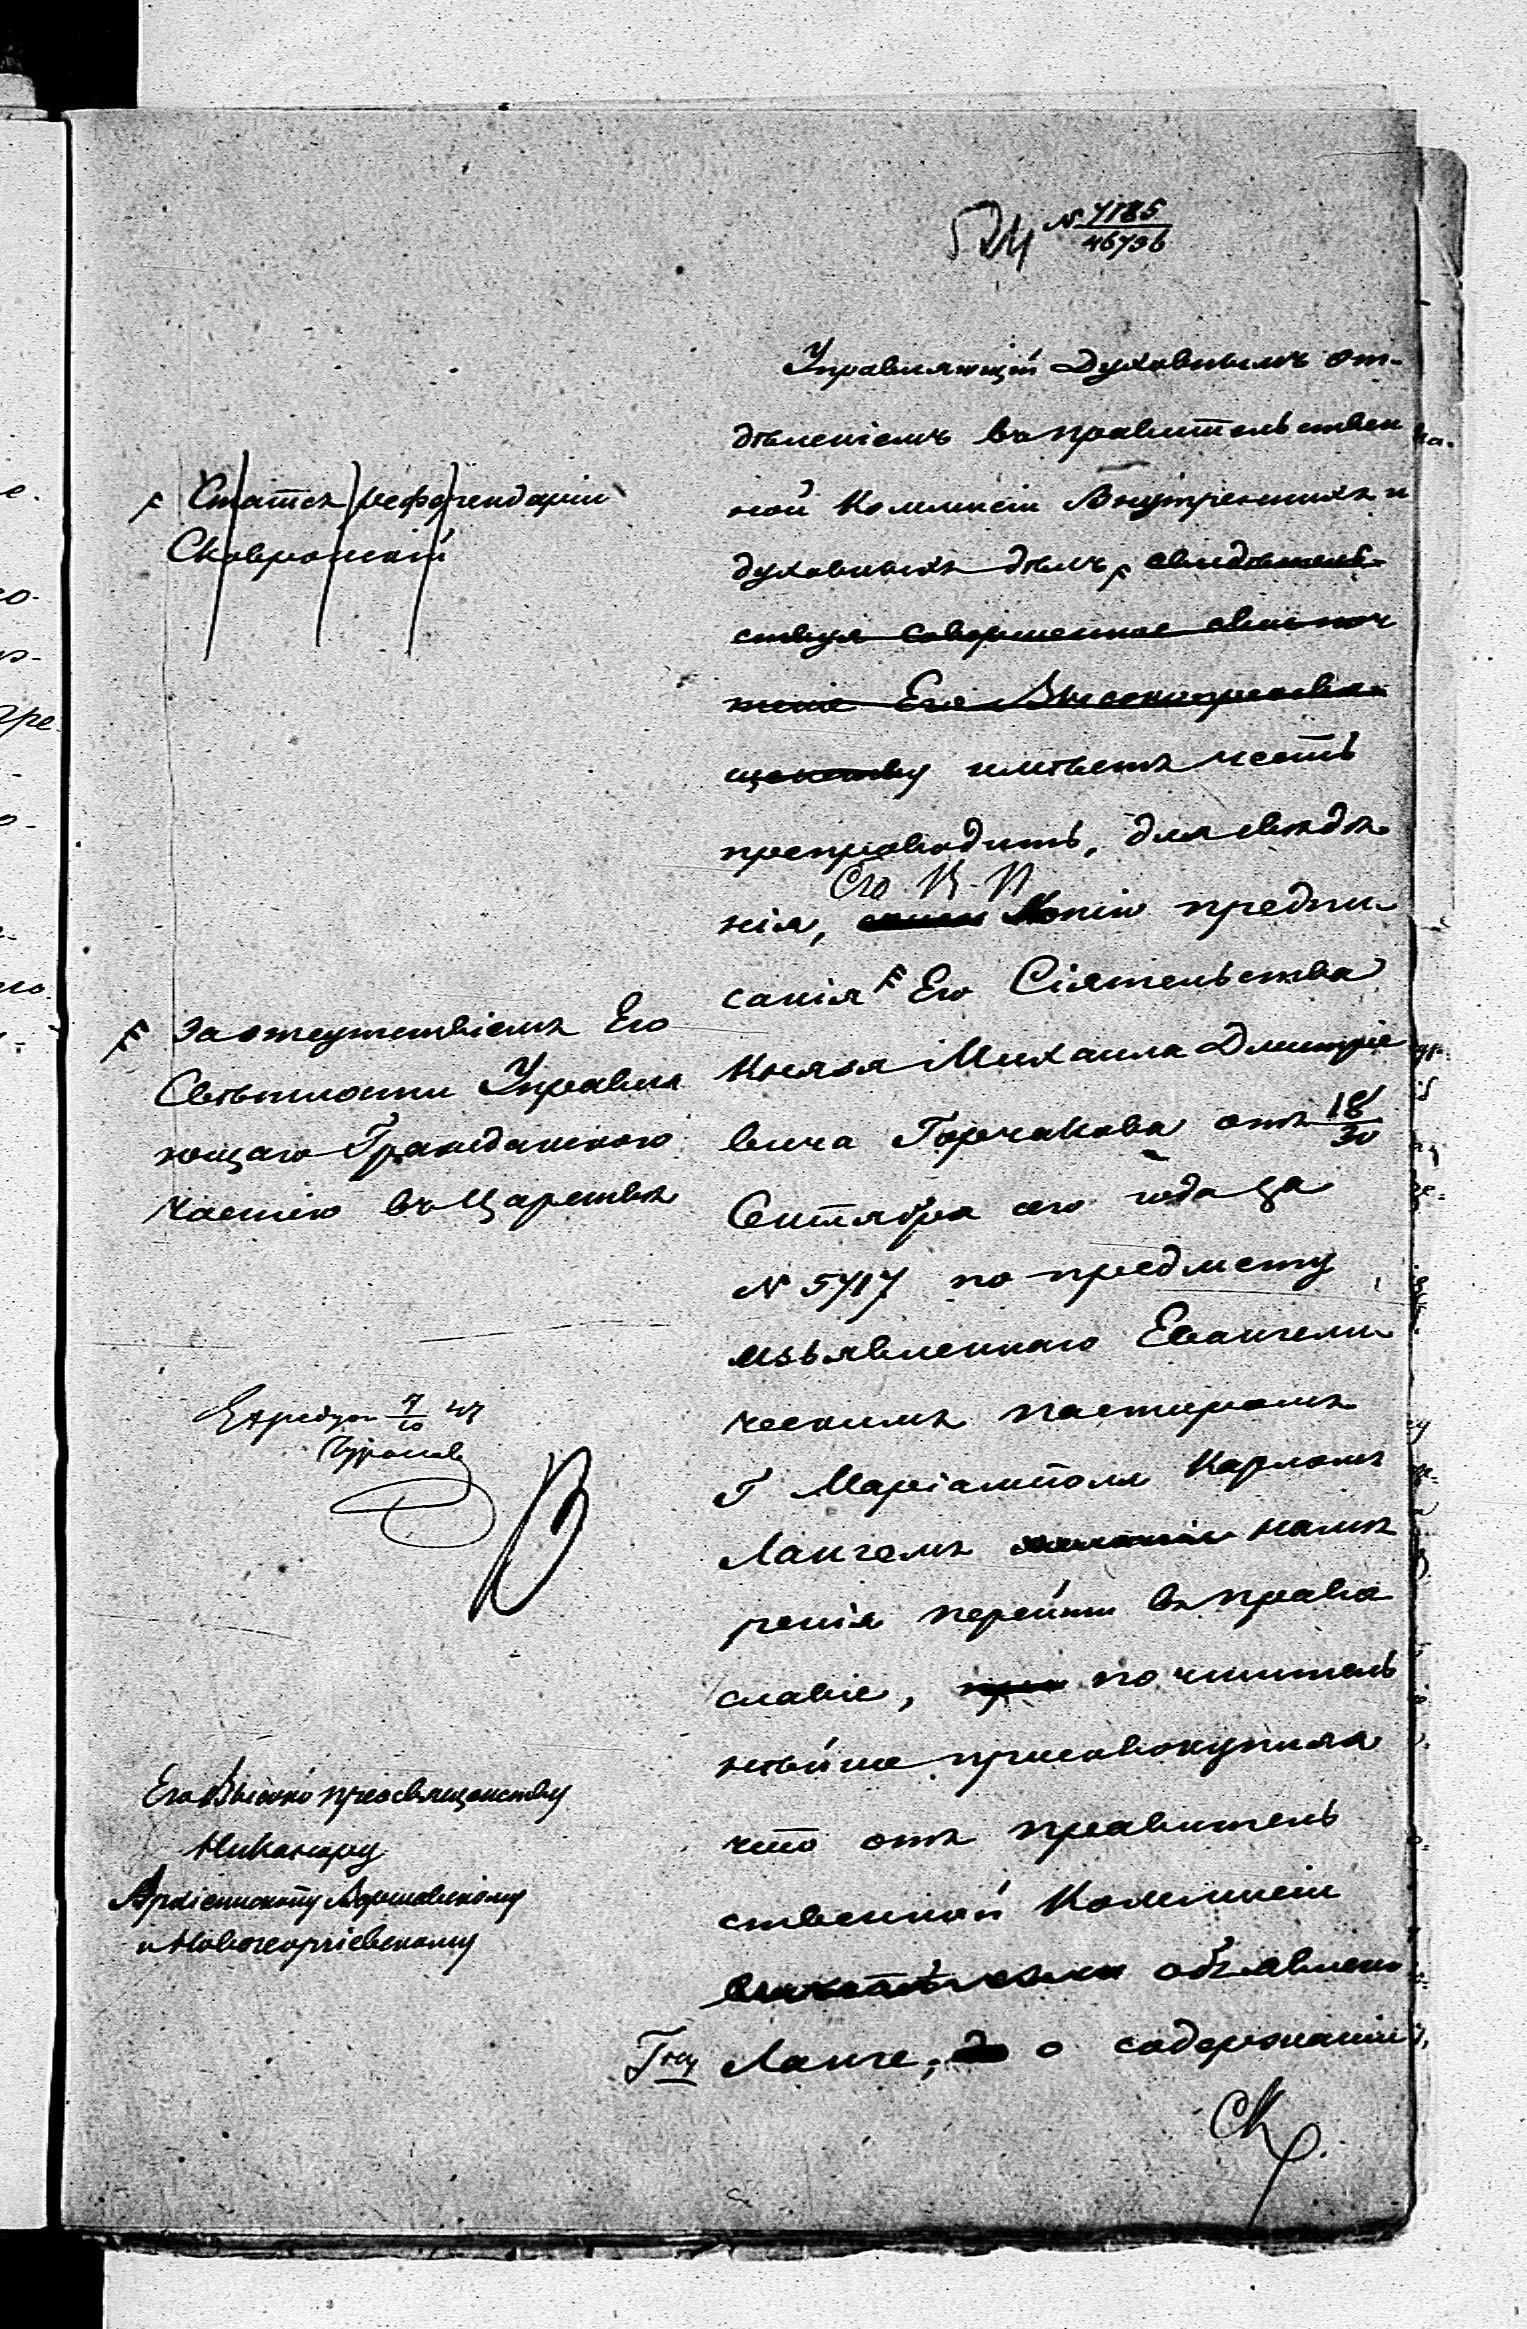 N 7185
46796
Управляющій Духовнымъ от-
дѣленіемъ въ правительствен
ной Коммисіи Внутреннихъ и
духовныхъ дѣлъ, свидѣтель-
ствуя совершенное свое поч
теніе Его Высокопреосвя-
щенству имѣетъ честь
препроводить, для свѣдѣ
Его В. П.
нія, копію предпи
санія Его Сіятельства
Князя Михаила Дмитріе
вича Горчакова отъ 18/30
Сентября сего года за
N 5717 по предмету
изъявленнаго Евангели
ческимъ пасторомъ
г Маріамполя Карломъ
Лангемъ намѣ
ренія перейти въ право
славіе, почтитель
нѣйше присовокупляя
что отъ правитель
ственной Коммисіи
объявлено
Гну Ланге, о содержаніи
Статсъ референдарій
Сковронскій
За отсутствіемъ Его
Свѣтлости Управля
ющаго Гражданскою
частію въ Царствѣ
Его Высокопреосвященству
Никанору
Архіепископу Варшавскому
и Новогеоргіевскому
СК